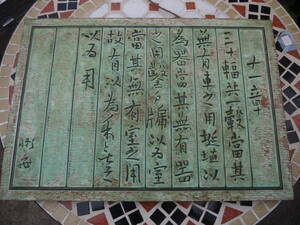 十一章
三十輻共一轂當其
無有車之用埏埴以
為器當其無有器
之用鑿戶牖以為室
當其無有室之用
故有以為利無之
以為用